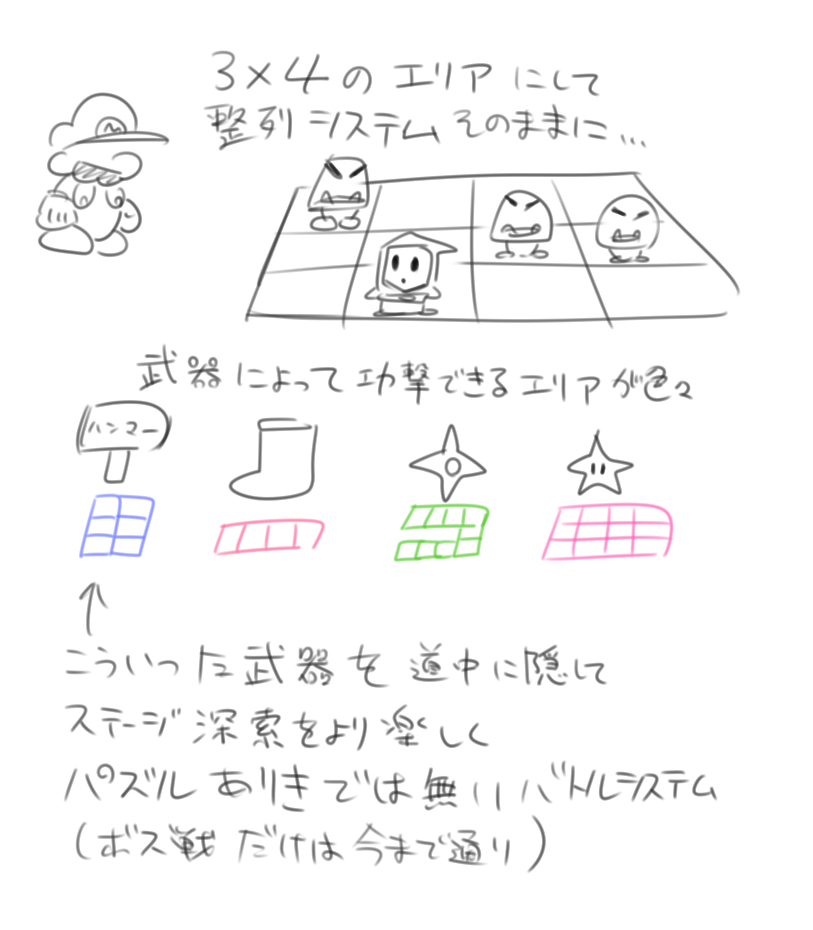 3×4のエリアにして
整列システムそのままに...
M
武器によって功撃できるエリアが色々
ハンマー
↑
こういった武器を道中に隠して
ステージ深索をより楽しく
パズルありきでは無いバトルシステム
(ボス戦だけは今まで通り)